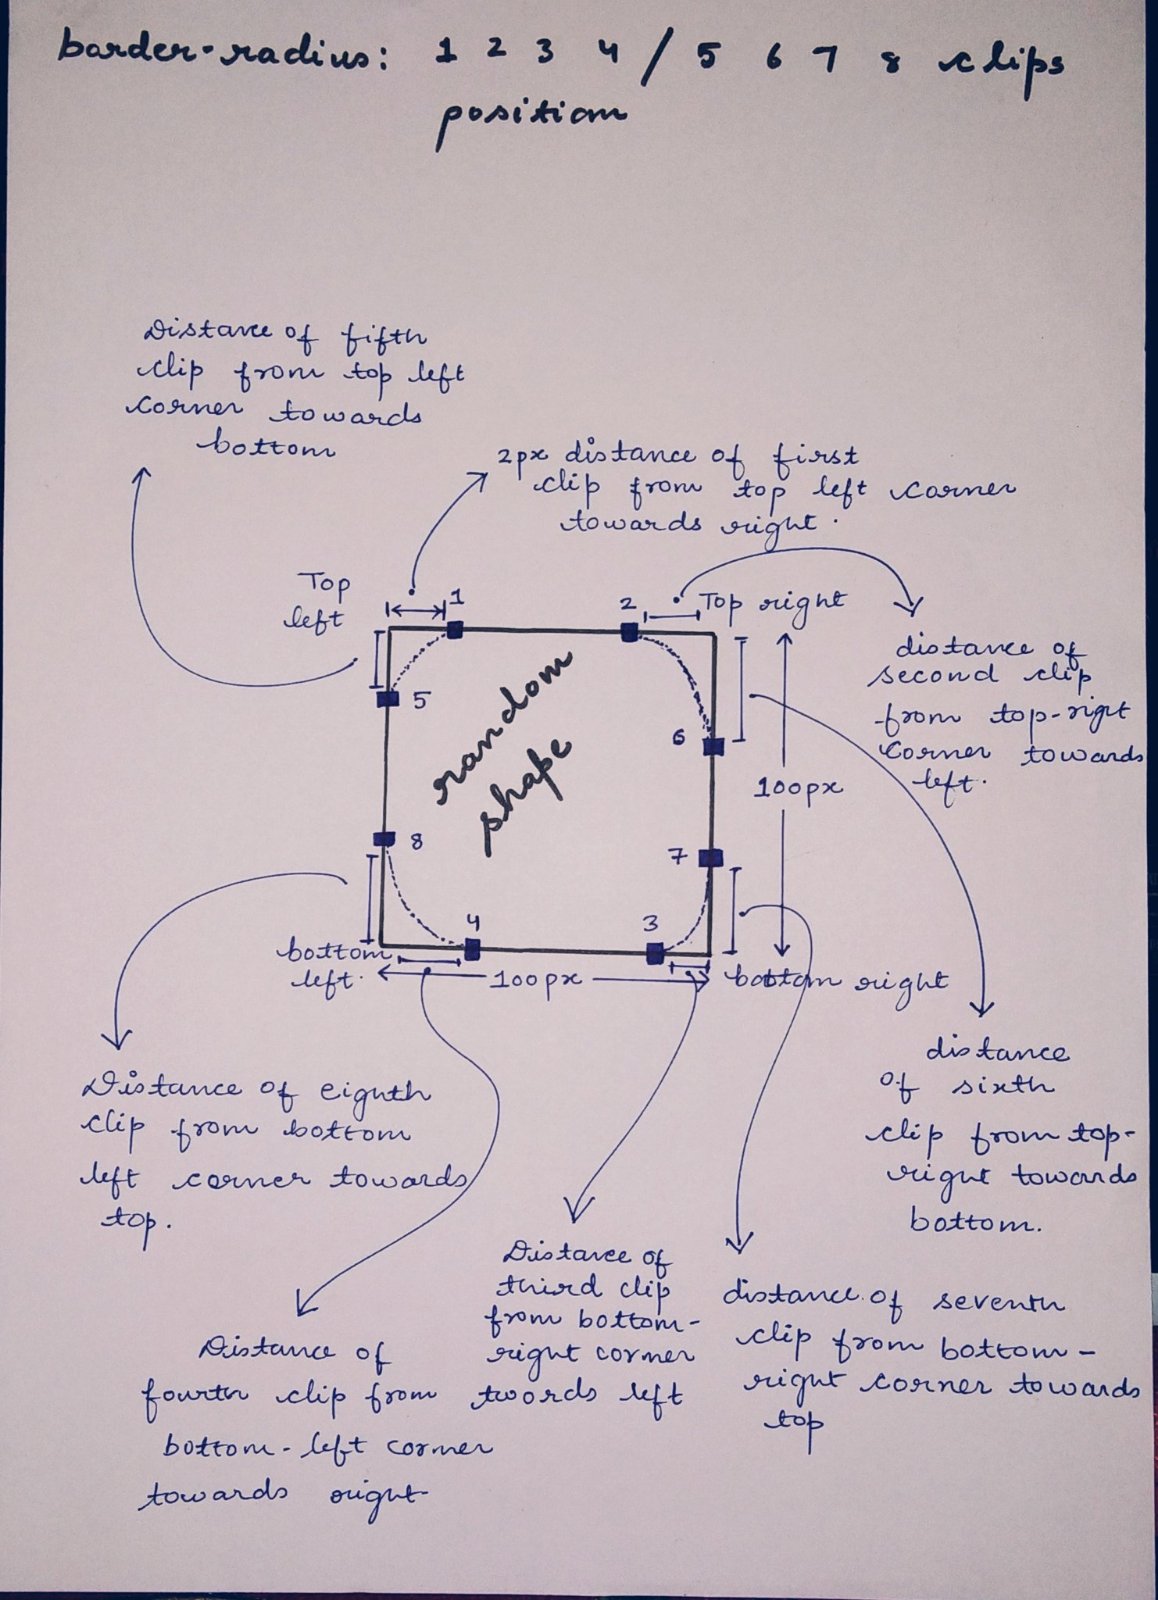 border-radius: 1 2 3 4 / 5 6 7 8 clips
position
Distance of fifth
clip from top left
corner towards
bottom
2px distance of first
clip from top left corner
towards right.
Top
left
1
2
Top right
distance of
second clip
from top-right
corner towards
left.
5
6
random
shape
100px
8
7
4
3
bottom
left.
100px
bottom right
distance
of sixth
clip from top-
right towards
bottom.
Distance of eighth
clip from bottom
left corner towards
top.
Distance of
third clip
from bottom-
right corner
twords left
distance of seventh
clip from bottom-
right corner towards
top
Distance of
fourth clip from
bottom-left corner
towards right